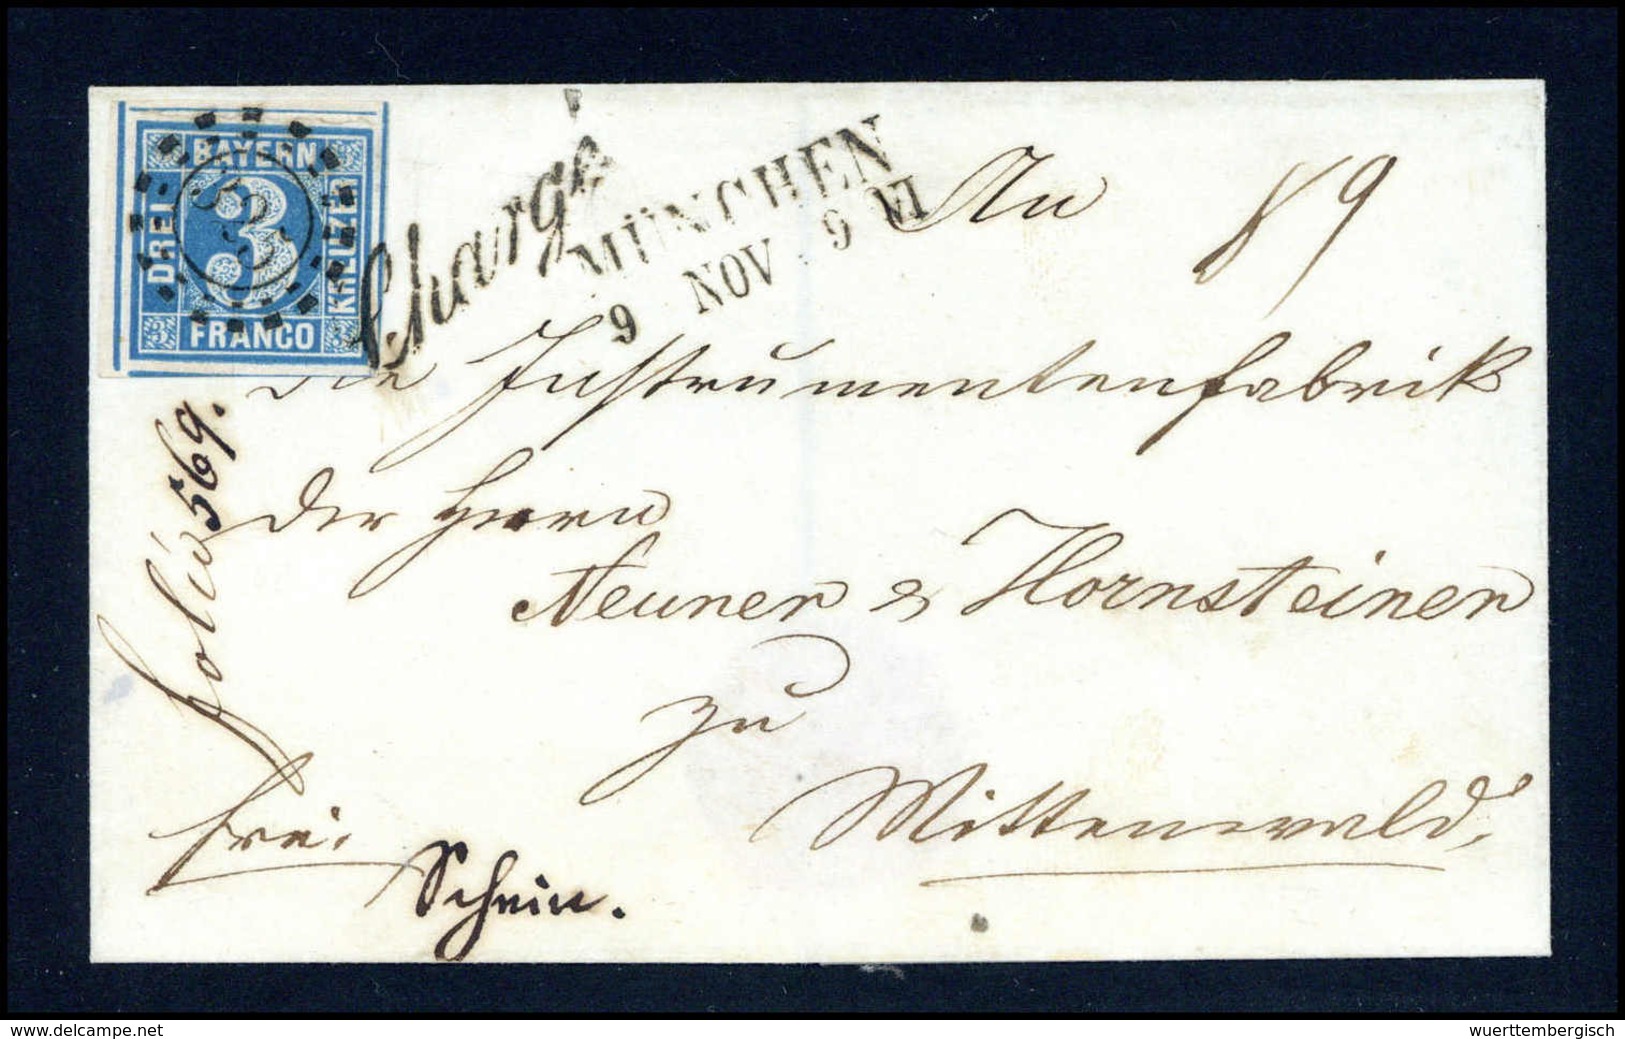 BAYERN
DREI
3
KREUZER
FRANCO
Chargé
MÜNCHEN
9 NOV 9 VI
An
89
die Instrumentenfabrik
der Herrn
Neuner & Hornsteiner
zu
Mittenwald.
folio 569.
frei.
Schein.
www.delcampe.net
wuerttembergisch